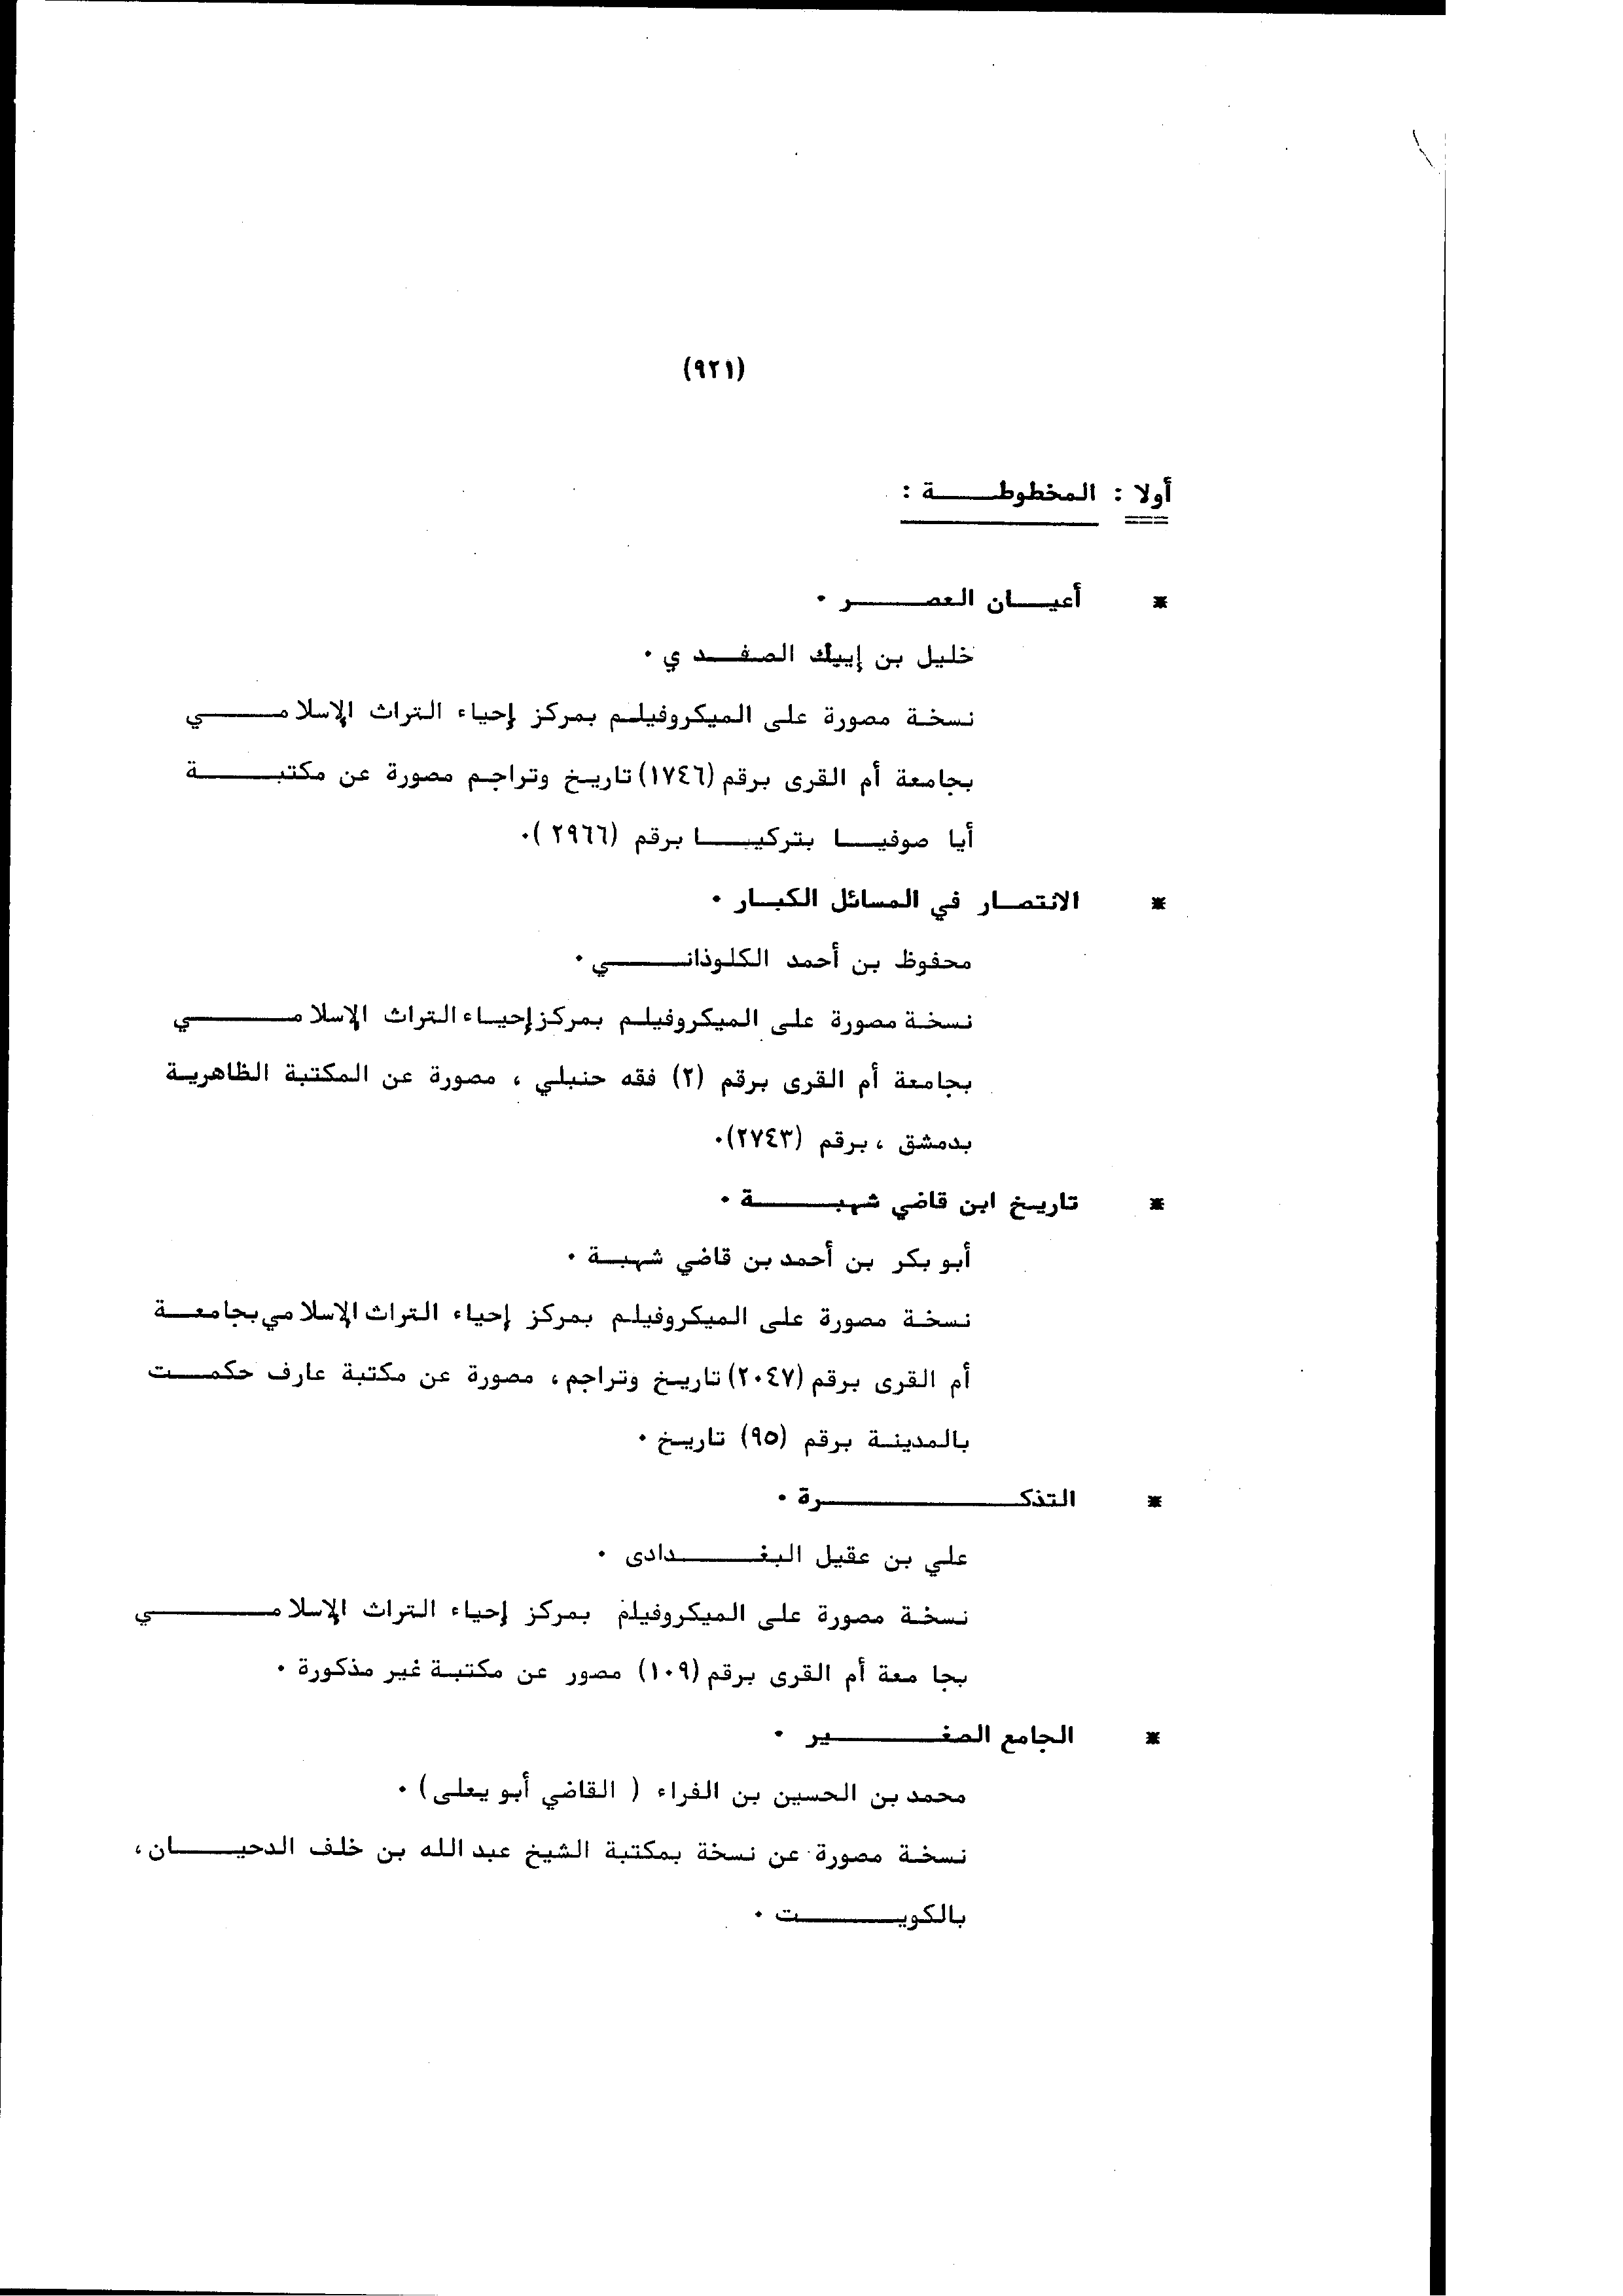 (٩٢١)
أولا : المخطوطة :
* أعيان العصر ٠
خليل بن إيبك الصفدي ٠
نسخة مصورة على الميكروفيلم بمركز إحياء التراث الإسلامي
بجامعة أم القرى برقم (١٧٤٦) تاريخ وتراجم مصورة عن مكتبة
أيا صوفيا بتركيا برقم (٢٩٦٦)٠
* الانتصار في المسائل الكبار ٠
محفوظ بن أحمد الكلوذاني ٠
نسخة مصورة على الميكروفيلم بمركز إحياء التراث الإسلامي
بجامعة أم القرى برقم (٢) فقه حنبلي ، مصورة عن المكتبة الظاهرية
بدمشق ، برقم (٢٧٤٣)٠
* تاريخ ابن قاضي شهبة ٠
أبو بكر بن أحمد بن قاضي شهبة ٠
نسخة مصورة على الميكروفيلم بمركز إحياء التراث الإسلامي بجامعة
أم القرى برقم (٢٠٤٧) تاريخ وتراجم ، مصورة عن مكتبة عارف حكمت
بالمدينة برقم (٩٥) تاريخ ٠
* التذكرة ٠
علي بن عقيل البغدادى ٠
نسخة مصورة على الميكروفيلم بمركز إحياء التراث الإسلامي
بجامعة أم القرى برقم (١٠٩) مصور عن مكتبة غير مذكورة ٠
* الجامع الصغير ٠
محمد بن الحسين بن الفراء ( القاضي أبو يعلى) ٠
نسخة مصورة عن نسخة بمكتبة الشيخ عبد الله بن خلف الدحيان ،
بالكويت ٠